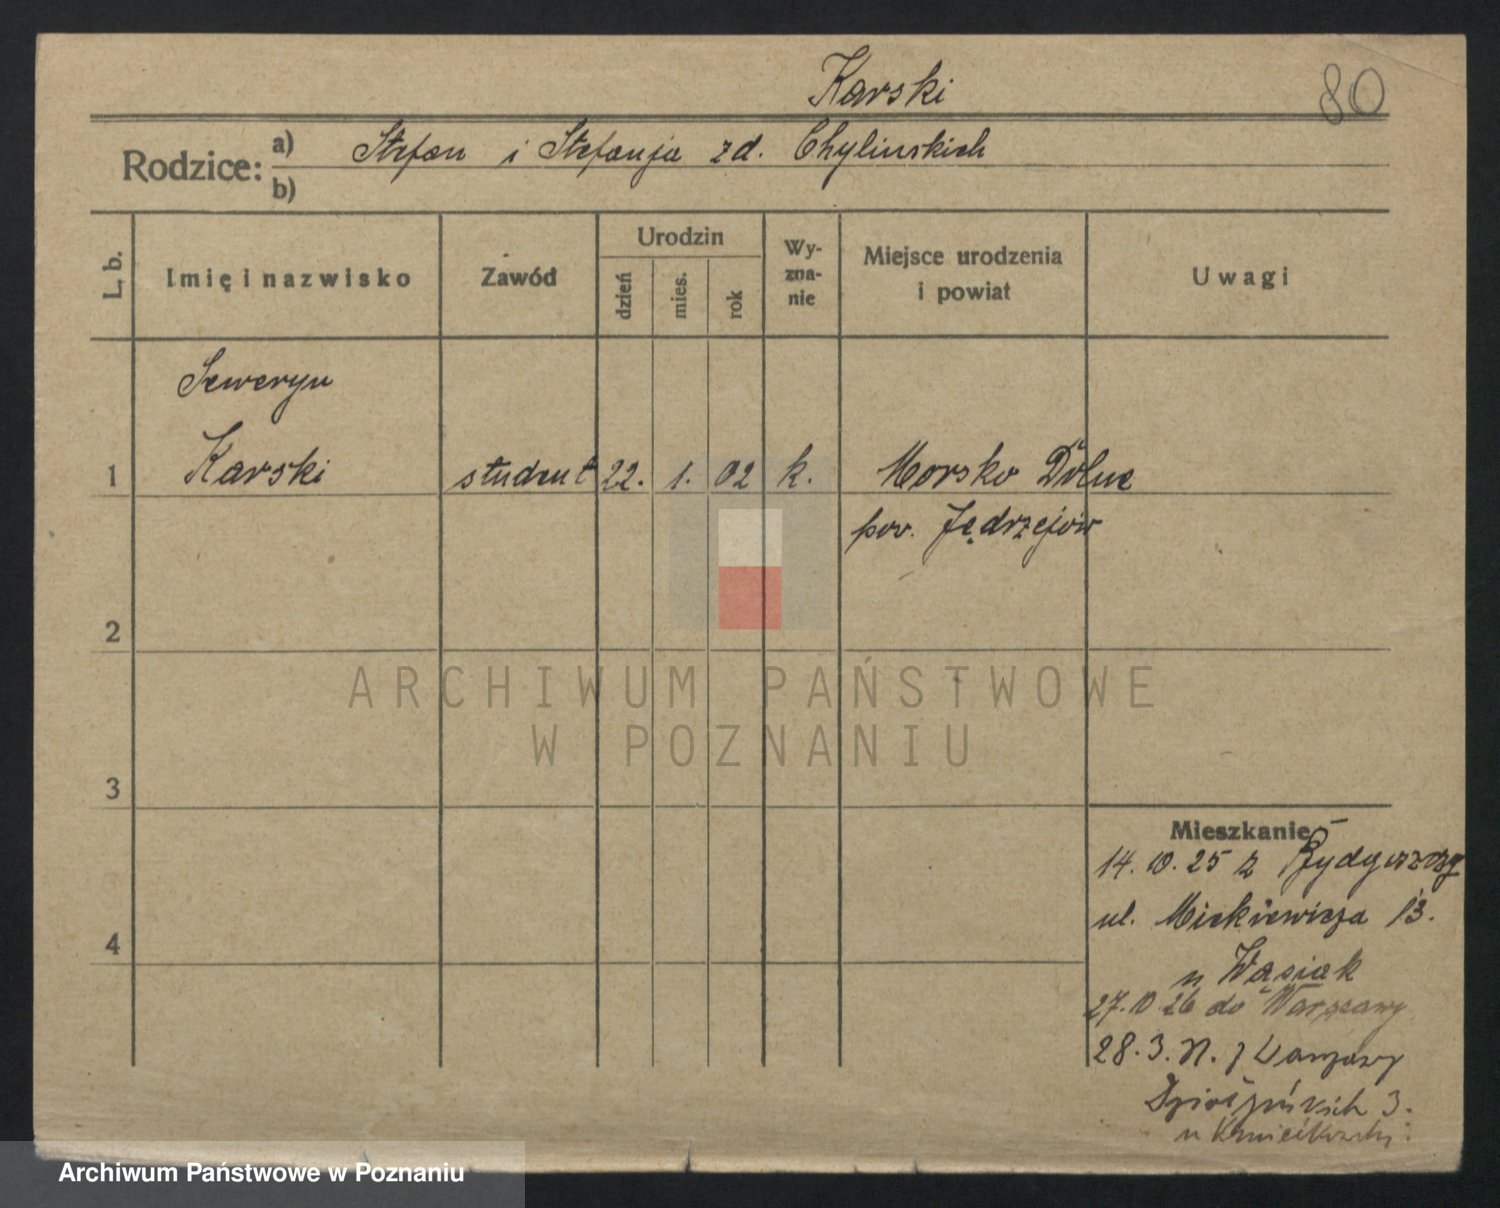 Karski
80
Rodzice: a) Stefan i Stefanja zd. Chylinskich
b)
L. b.
Imię i nazwisko
Zawód
Urodzin
dzień
mies.
rok
Wy-
zna-
nie
Miejsce urodzenia
i powiat
Uwagi
Seweryn
1 Karski student 22. 1. 02 k. Morsko Dolne
pow. Jędrzejów
2
3
4
Mieszkanie
14.10.25 z Bydgoszczy
ul. Mickiewicza 13.
u Wąsiak
27.10.26 do Warszawy
28.3. z Warszawy
3.
u
ARCHIWUM PAŃSTWOWE
W POZNANIU
Archiwum Państwowe w Poznaniu